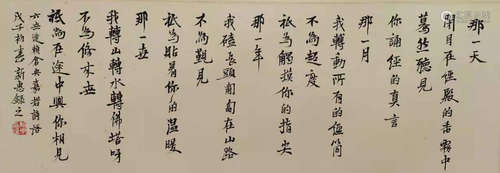 那一天
閉目在經殿的香霧中
驀然聽見
你誦經的真言
那一月
我轉動所有的經筒
不為超度
只為觸摸你的指尖
那一年
我磕長頭匍匐在山路
不為覲見
只為貼着你的溫暖
那一世
我轉山轉水轉佛塔呀
不為修來世
只為在途中與你相見
六世達賴倉央嘉措詩語